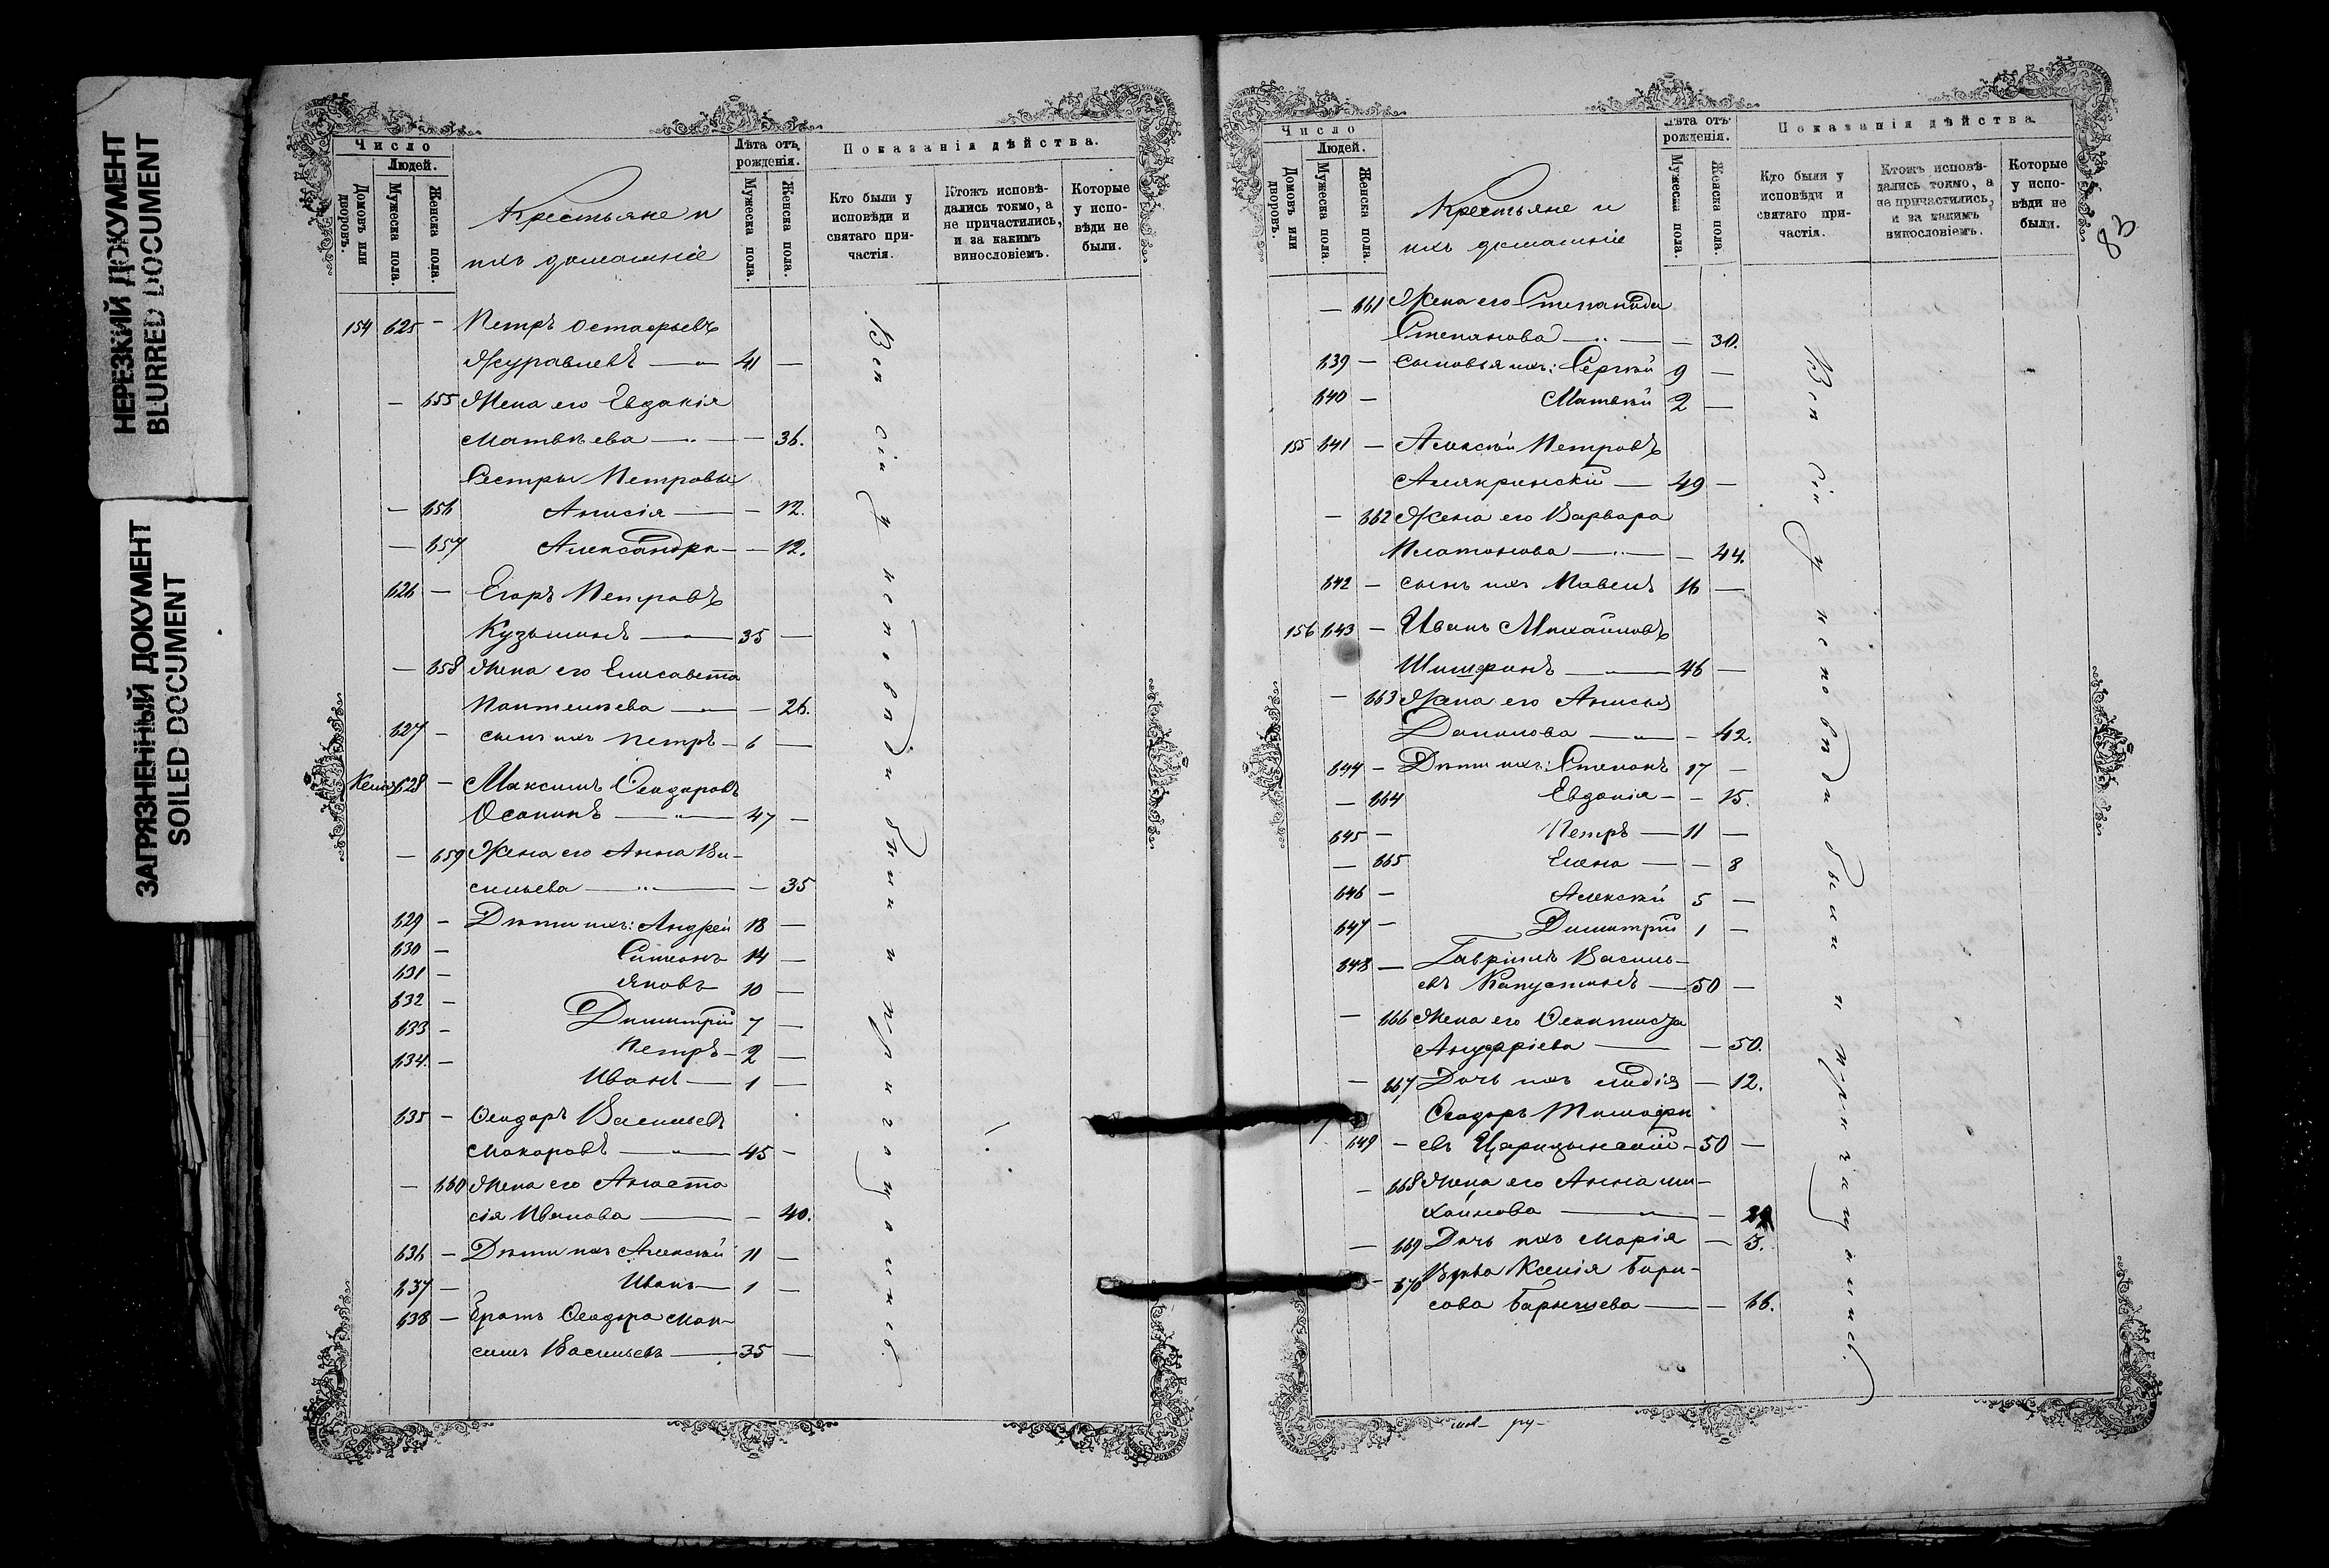 НЕРЕЗКИЙ ДОКУМЕНТ
BLURRED DOCUMENT
ЗАГРЯЗНЕННЫЙ ДОКУМЕНТ
SOILED DOCUMENT
Число
Людей.
Домовъ или дворовъ.
Мужеска пола.
Женска пола.
Крестьяне и
ихъ домашніе
Лѣта отъ рожденія.
Мужеска пола.
Женска пола.
Показанія дѣйства.
Кто были у исповѣди и святаго причастія.
Ктожъ исповѣдались токмо, а не причастились, и за какимъ винословіемъ.
Которые у исповѣди не были.
154 625 — Петръ Остафьевъ
Журавлевъ — 41 —
— 655 Жена его Евдокія
Матвѣева — — 36.
Сестры Петровы
— 656 Анисія — — 12.
— 657 Александра — — 12.
626 — Егоръ Петровъ
Кузьминъ — 35 —
— 658 Жена его Елисавета
Пантелѣева — — 26.
627 — сынъ ихъ Петръ — 6 —
628 — Максимъ Ѳеодоровъ
Осапинъ — 47 —
— 659 Жена его Анна Ва-
сильева — — 35
629 — Дѣти ихъ: Андрей 18 —
630 — Симеонъ 14 —
631 — Яковъ 10 —
632 — Димитрій 7 —
633 — Петръ — 2 —
634. — Иванъ — 1 —
635 — Ѳеодоръ Васильевъ
Макаровъ — 45 —
— 660 Жена его Анаста
сія Иванова — — 40.
636 — Дѣти ихъ Алексѣй 11 —
637 — Иванъ — 1 —
638 — Братъ Ѳеодора Мак-
симъ Васильевъ — 35 —
Всѣ сіи у исповѣди были и причащались
Число
Людей.
Домовъ или дворовъ.
Мужеска пола.
Женска пола.
Крестьяне и
ихъ домашніе
Лѣта отъ рожденія.
Мужеска пола.
Женска пола.
Показанія дѣйства.
Кто были у исповѣди и святаго причастія.
Ктожъ исповѣдались токмо, а не причастились, и за какимъ винословіемъ.
Которые у исповѣди не были.
98
— 661 Жена его Степанида
Степанова — — 30.
639 — Сыновья ихъ: Сергѣй 9 —
640 — Матвѣй 2 —
155 641 — Алексѣй Петровъ
49 —
— 662 Жена его Варвара
Платонова — — 44.
642 — сынъ ихъ Павелъ 16 —
156 643 — Иванъ Михайловъ
46 —
— 663 Жена его Анисья
Данилова — — 42.
644 — Дѣти ихъ: Степанъ 17 —
— 664 Евдокія — — 15.
645 — Петръ — 11 —
— 665 Елена — — 8
646 — Алексѣй 5 —
647 — Димитрій 1 —
648 — Гавріилъ Василь-
евъ Капустинъ — 50 —
— 666 Жена его Ѳеоктиста
Ануфріева — — 50.
— 667 Дочь ихъ Лидія — 12.
Ѳеодоръ Тимофе
649 — евъ Царицынскій — 50 —
— 668 Жена его Анна Ми-
хайлова —
— 669 Дочь ихъ Марія — 3.
— 670 Вдова Ксенія Бори-
сова Барышева — — 66.
Всѣ сіи у исповѣди были и причащались.